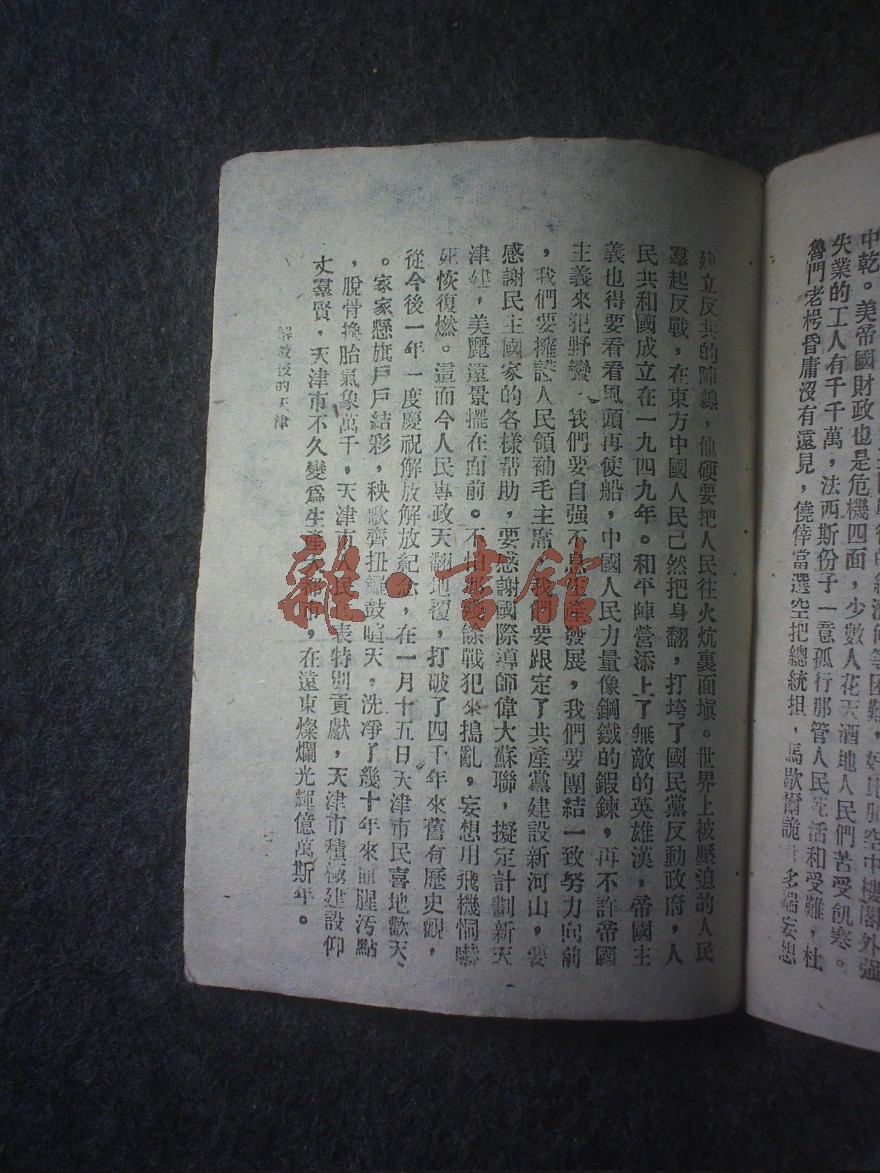 經濟何等困難，好比肺空中樓閣外强
中乾。美帝國財政也是危機四面，少數人花天酒地人民們苦受飢寒。
失業的工人有千千萬，法西斯份子一意孤行那管人民死活和受難，杜
魯門老楞昏庸沒有遠見，僥倖當選空把總統坦，馬歇爾詭計多端妄想
建立反共的陣線，他硬要把人民往火炕裏面塡。世界上被壓迫的人民
羣起反戰，在東方中國人民已然把身翻，打垮了國民黨反動政府，人
民共和國成立在一九四九年。和平陣營添上了無敵的英雄漢，帝國主
義也得要看看風頭再使船，中國人民力量像鋼鐵的鍛鍊，再不許帝國
主義來犯野蠻，我們要自强不息生產發展，我們要團結一致努力向前
，我們要擁護人民領袖毛主席，我們要跟定了共產黨建設新河山，要
感謝民主國家的各樣帮助，要感謝國際導師偉大蘇聯，擬定計劃新天
津建，美麗遠景擺在面前。不怕那殘餘戰犯來搗亂，妄想用飛機恫嚇
死恢復燃。這而今人民專政天翻地覆，打破了四千年來舊有歷史觀，
從今後一年一度慶祝解放解放紀念，在一月十五日天津市民喜地歡天
。家家懸旗戶戶結彩，秧歌齊扭鑼鼓喧天，洗凈了幾十年來血腥汚點
，脫骨換胎氣象萬千，天津市人民代表特別貢獻，天津市積極建設仰
丈羣賢，天津市不久變爲生產大都市，在遠東燦爛光輝億萬斯年。
解放後的天津
雜·書館